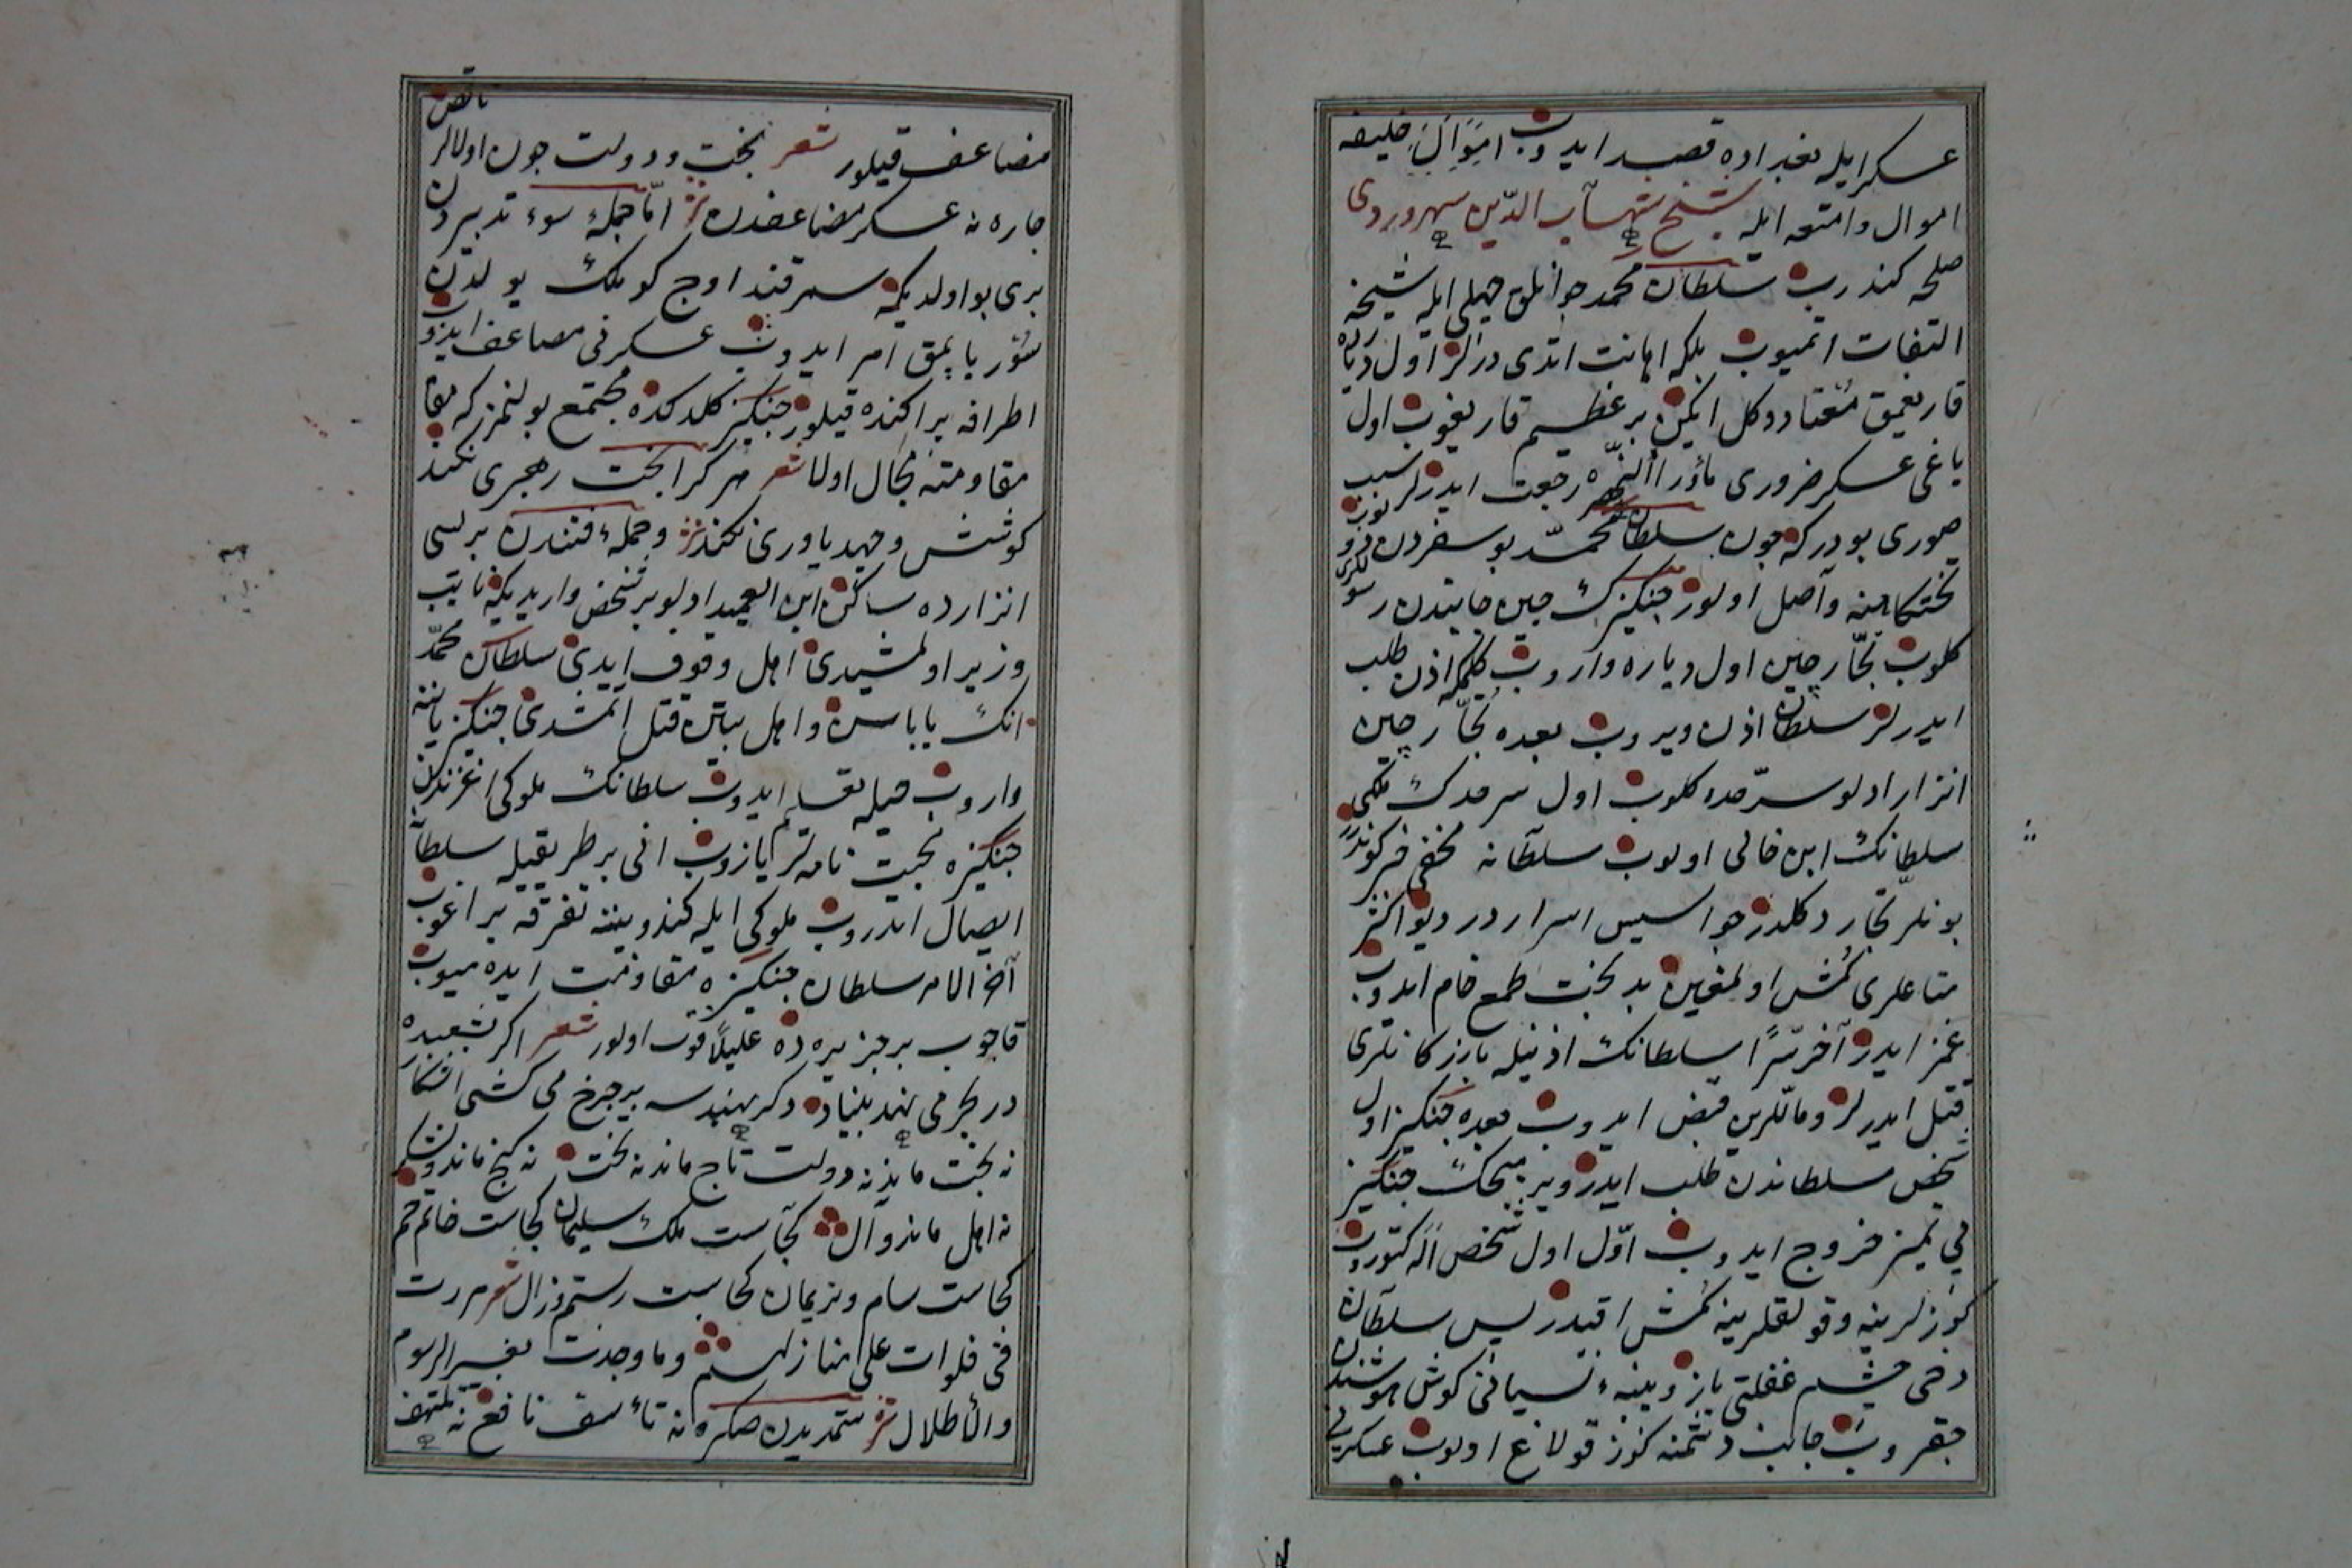 عسكر ايله بغداده قصد ايدوب اموال خليفه
اموال وامتعه ايله شيخ شهاب الدين سهروردى
صلحه كندرب سلطان محمد جوانلق جهلى ايله شيخه
التفات اتميوب بلكه اهانت اتدى درلر اول ديارده
قار يغمق معتاد دكل ايكن بر عظيم قار يغوب اول
ياغى عسكر ضرورى ماوراالنهره رجعت ايدرلر سبب
صورى بودركه جون سلطان محمد بو سفردن دونوب
تختكاهنه واصل اولور جنكيزك جين جانبندن رسوللرى
كلوب تجار جين اول دياره واروب كلمكه اذن طلب
ايدرلر سلطان اذن ويروب بعده تجار جين
انزار ادلو سرحده كلوب اول سرحدك ملكى
سلطانك ابن خالى اولوب سلطانه مخفى خبر كوندرر
بونلر تجار دكلدر جواسيس اسراردر ديو اكثر
متاعلرى كمش اولمغين بدبخت طمع خام ايدوب
غمز ايدر آخر سرا سلطانك اذنيله بازركانلرى
قتل ايدرلر ومالارين قبض ايدوب بعده جنكيز اول
شخص سلطاندن طلب ايدر ويرميجك جنكيز
بى تميز خروج ايدوب اول اول شخص اله كتوروب
كوزلرينه وقولقلرينه كمش اقيدر پس سلطان
دخى چشم غفلتى يازو پنبه ء نسيانى كوش هوشندن
جقروب جانب دشمنه كوز قولاغ اولوب عسكرينى
مضاعف قيلور شعر بخت ودولت جون اولالر ناقص
جاره نه عسكر مضاعفدن نثر اما جمله سوء تدبيردن
برى بو اولديكه سمرقند اوج كوملك يولدن
سور ياپمق امر ايدوب عسكرنى مضاعف ايدوب
اطرافه براكنده قيلور جنكيز كلدكده مجتمع بولنمز كه
مقاومته مجال اولا شعر هركرا بخت رهبرى نكند
كوشش وجهد ياورى نكند نثر وجمله فتندن برسى
انزارده ساكن ابن العميد ادلو بر شخص واريديكه نايب
وزير اولمشيدى اهل وقوف ايدى سلطان محمد
انك باباسن واهل بيتن قتل اتمشدى جنكيز ياننه
واروب حيله تعليم ايدوب سلطانك ملوكى اغزندن
جنكيزه محبت نامه لر يازوب انى بر طريقيله سلطانه
ايصال اتدروب ملوكى ايله كندو بيننه تفرقه براغوب
آخر الامر سلطان جنكيزه مقاومت ايده ميوب
قاجوب بر جزيره ده عليلا فوت اولور شعر اكر بشعبده
در بحر مى نهد بنياد وكر بهندسه بر جرخ مى كشى اشكال
نه بخت ماند نه دولت نه تاج ماند نه تخت نه كنج ماند ولشكر
نه اهل ماند وآل كجاست ملك سليمان كجاست خاتم جم
كجاست سام ونريمان كجاست رستم وزال شعر مررت
فى فلوات على منازلهم وما وجدت بغير الرسوم
والأطلال نثر ستمديدن صكره نه تأسف نافع نه تلهف